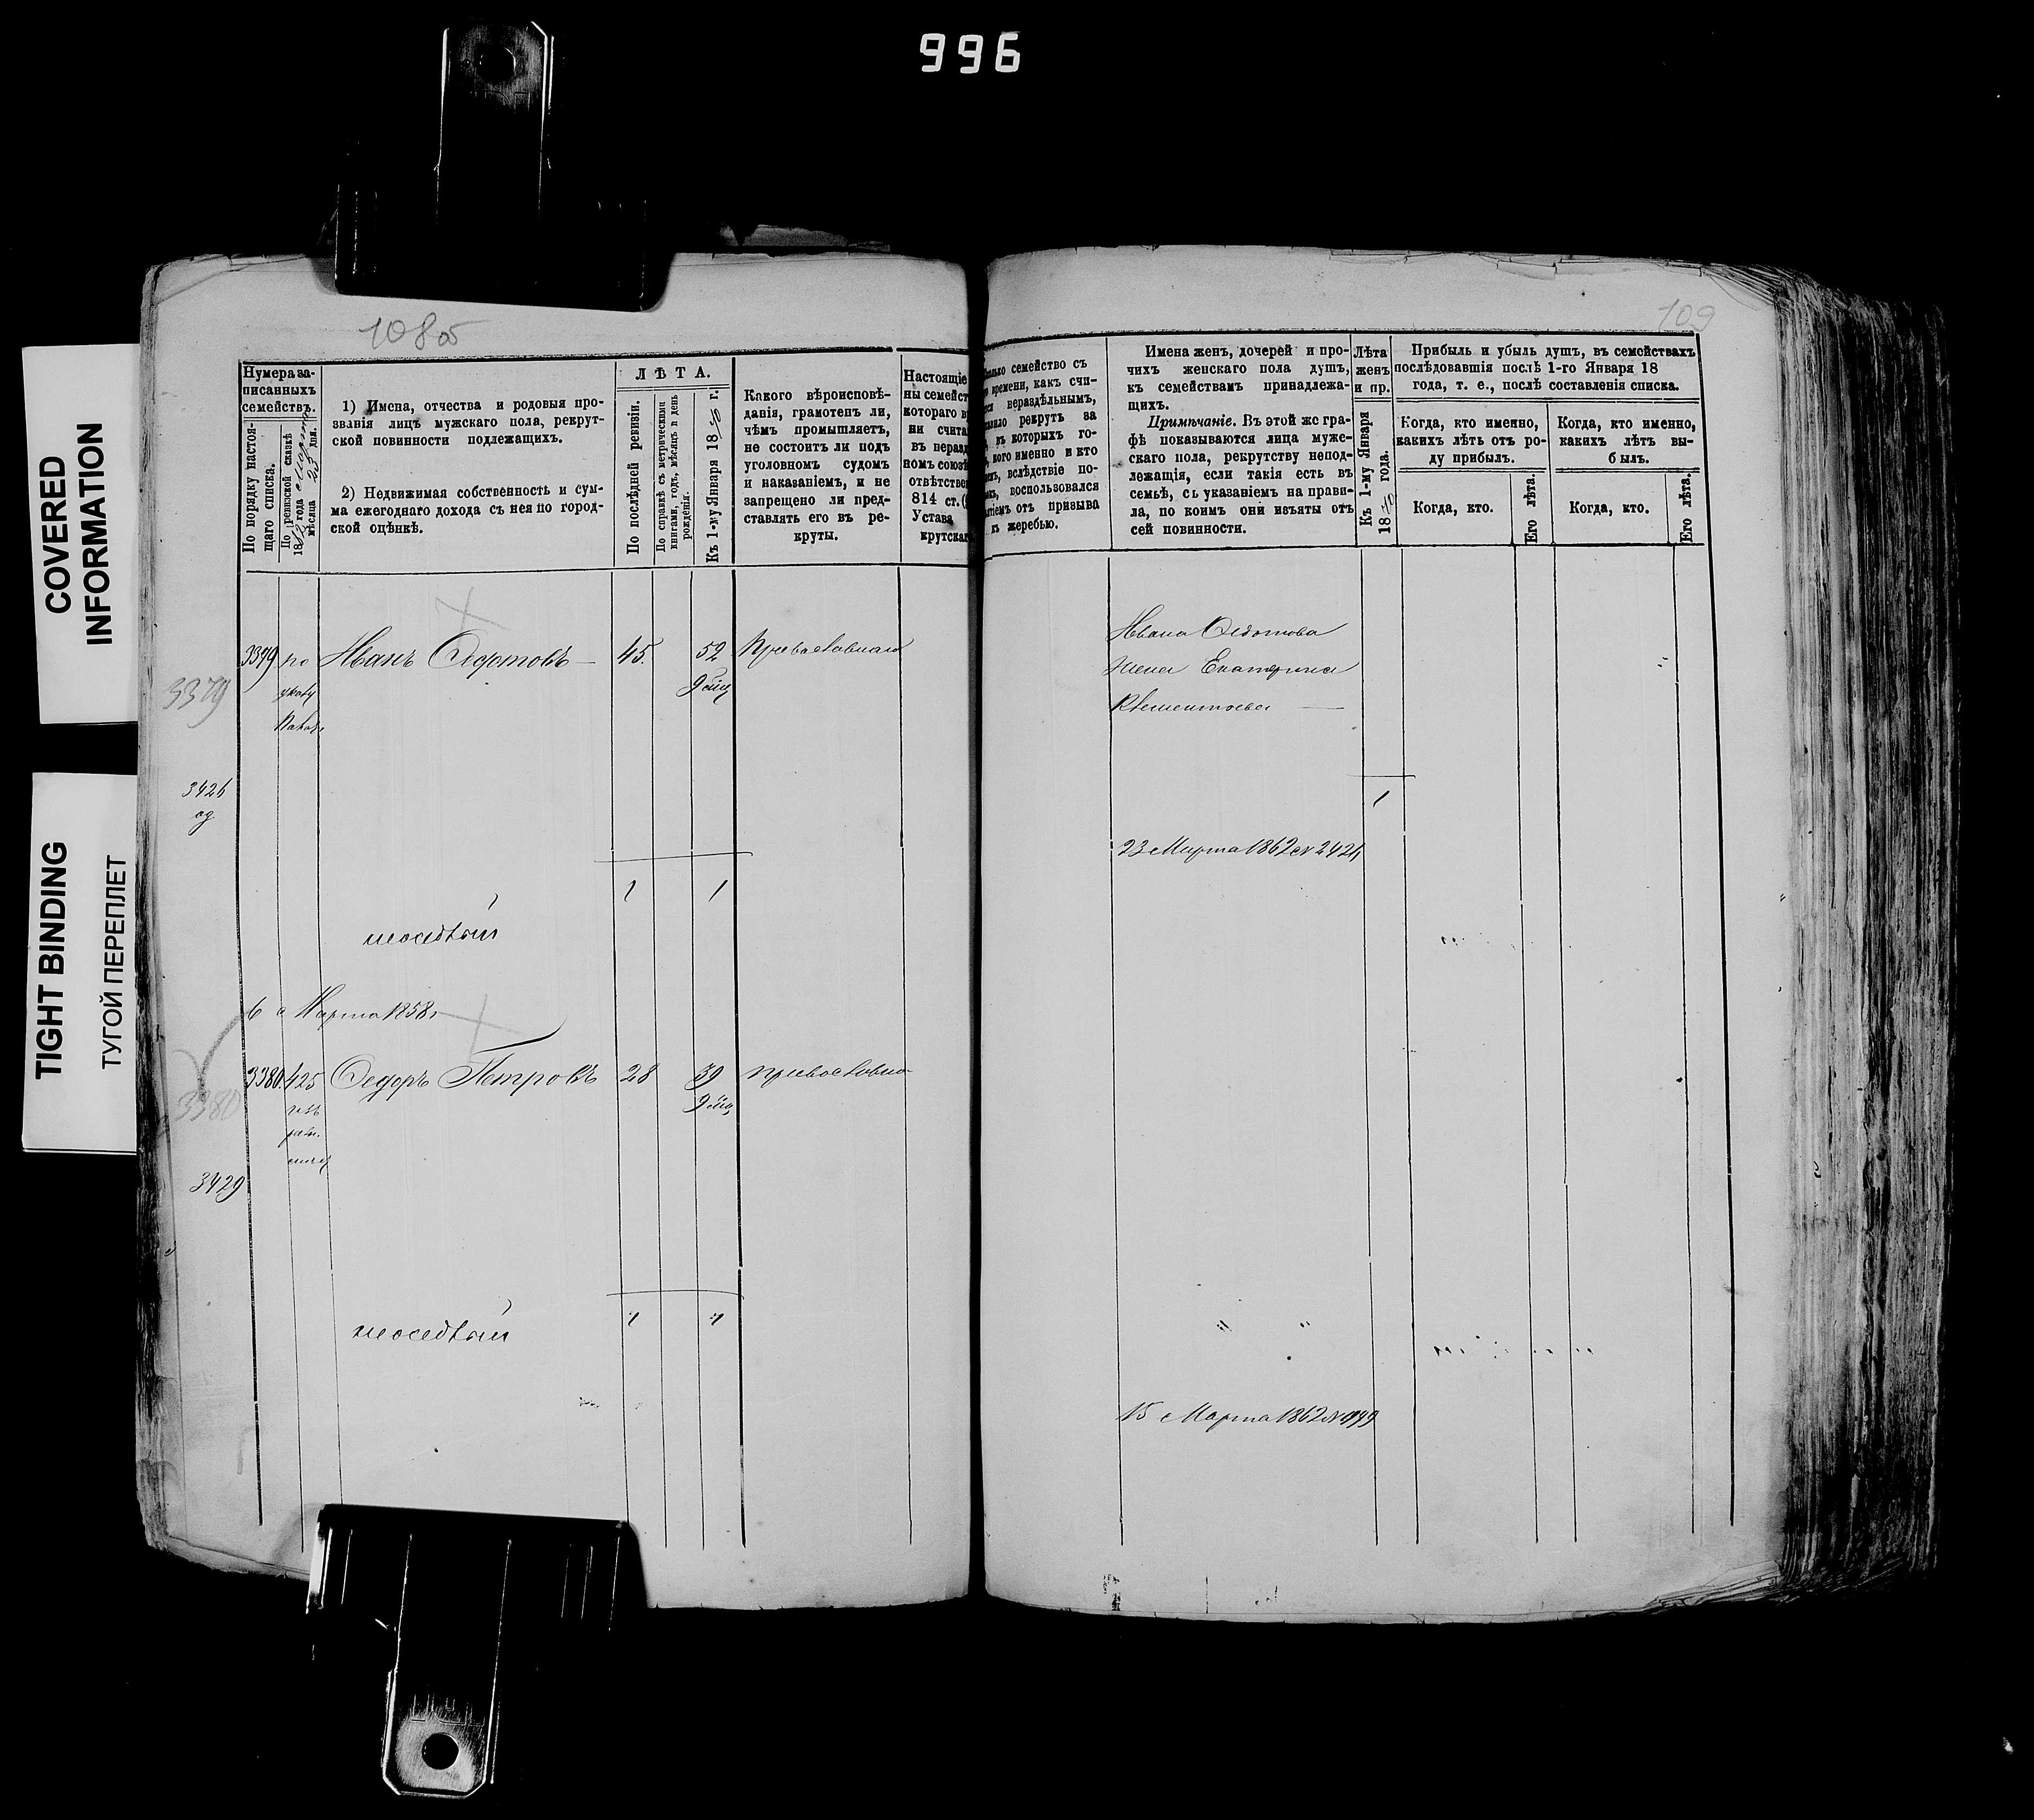 996
COVERED
INFORMATION
TIGHT BINDING
ТУГОЙ ПЕРЕПЛЕТ
108 об
Нумера за-
писанныхъ
семействъ.
По порядку настоя-
щаго списка.
По ревизской сказкѣ
18 года
мѣсяца дня.
1) Имена, отчества и родовыя про-
званія лицъ мужскаго пола, рекрут-
ской повинности подлежащихъ.
2) Недвижимая собственность и сум-
ма ежегоднаго дохода съ нея по город-
ской оцѣнкѣ.
ЛѢТА.
По послѣдней ревизіи.
По справкѣ съ метрическими
книгами, годъ, мѣсяцъ и день
рожденія.
Къ 1-му Января 18 г.
Какого вѣроисповѣ-
данія, грамотенъ ли,
чѣмъ промышляетъ,
не состоитъ ли подъ
уголовномъ судомъ
и наказаніемъ, и не
запрещено ли пред-
ставлять его въ ре-
круты.
Настоящіе
ны семейст
котораго в
ни счита
въ неразд
номъ союзѣ
отвѣтстве
814 ст.
Устава
крутскаг
3379 по Иванъ Федотовъ 45. 52 Православнаго
указу
3379
3426
1 1
6 Марта 1858
3380 425 Федоръ Петровъ 28 39
изъ
3380
3429
1 1
109
семейство съ
времени, какъ счи-
нераздѣльнымъ,
рекрутъ за
въ которыхъ го-
кого именно и кто
вслѣдствіе по-
воспользовался
отъ призыва
къ жеребью.
Имена женъ, дочерей и про-
чихъ женскаго пола душъ,
къ семействамъ принадлежа-
щихъ.
Примѣчаніе. Въ этой же гра-
фѣ показываются лица муже-
скаго пола, рекрутству непод-
лежащія, если такія есть въ
семьѣ, съ указаніемъ на прави-
ла, по коимъ они изъяты отъ
сей повинности.
Лѣта
женъ
и пр.
Къ 1-му Января
18 года.
Прибыль и убыль душъ, въ семействахъ
послѣдовавшія послѣ 1-го Января 18
года, т. е., послѣ составленія списка.
Когда, кто именно,
какихъ лѣтъ отъ ро-
ду прибылъ.
Когда, кто именно,
какихъ лѣтъ вы-
былъ.
Когда, кто.
Его лѣта.
Когда, кто.
Его лѣта.
Ивана Федотова
жена Екатерина
Клементьева
1
23 Марта 1862
15 Марта 1862